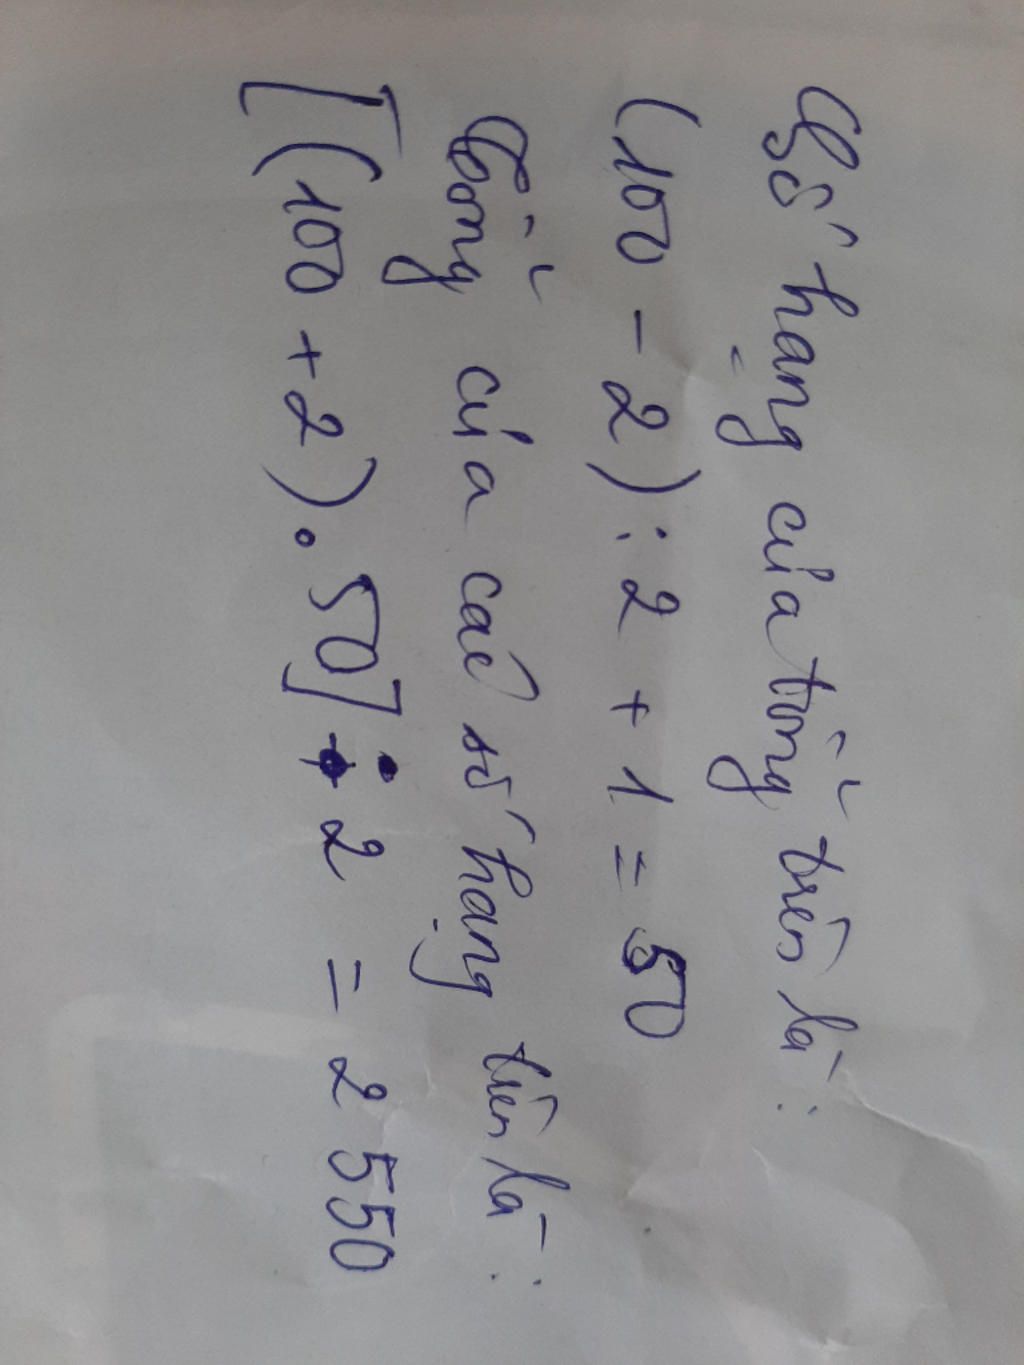 Số hạng của tổng trên là:
(100 - 2) : 2 + 1 = 50
Tổng của các số hạng trên là:
[(100 + 2) . 50] : 2 = 2 550